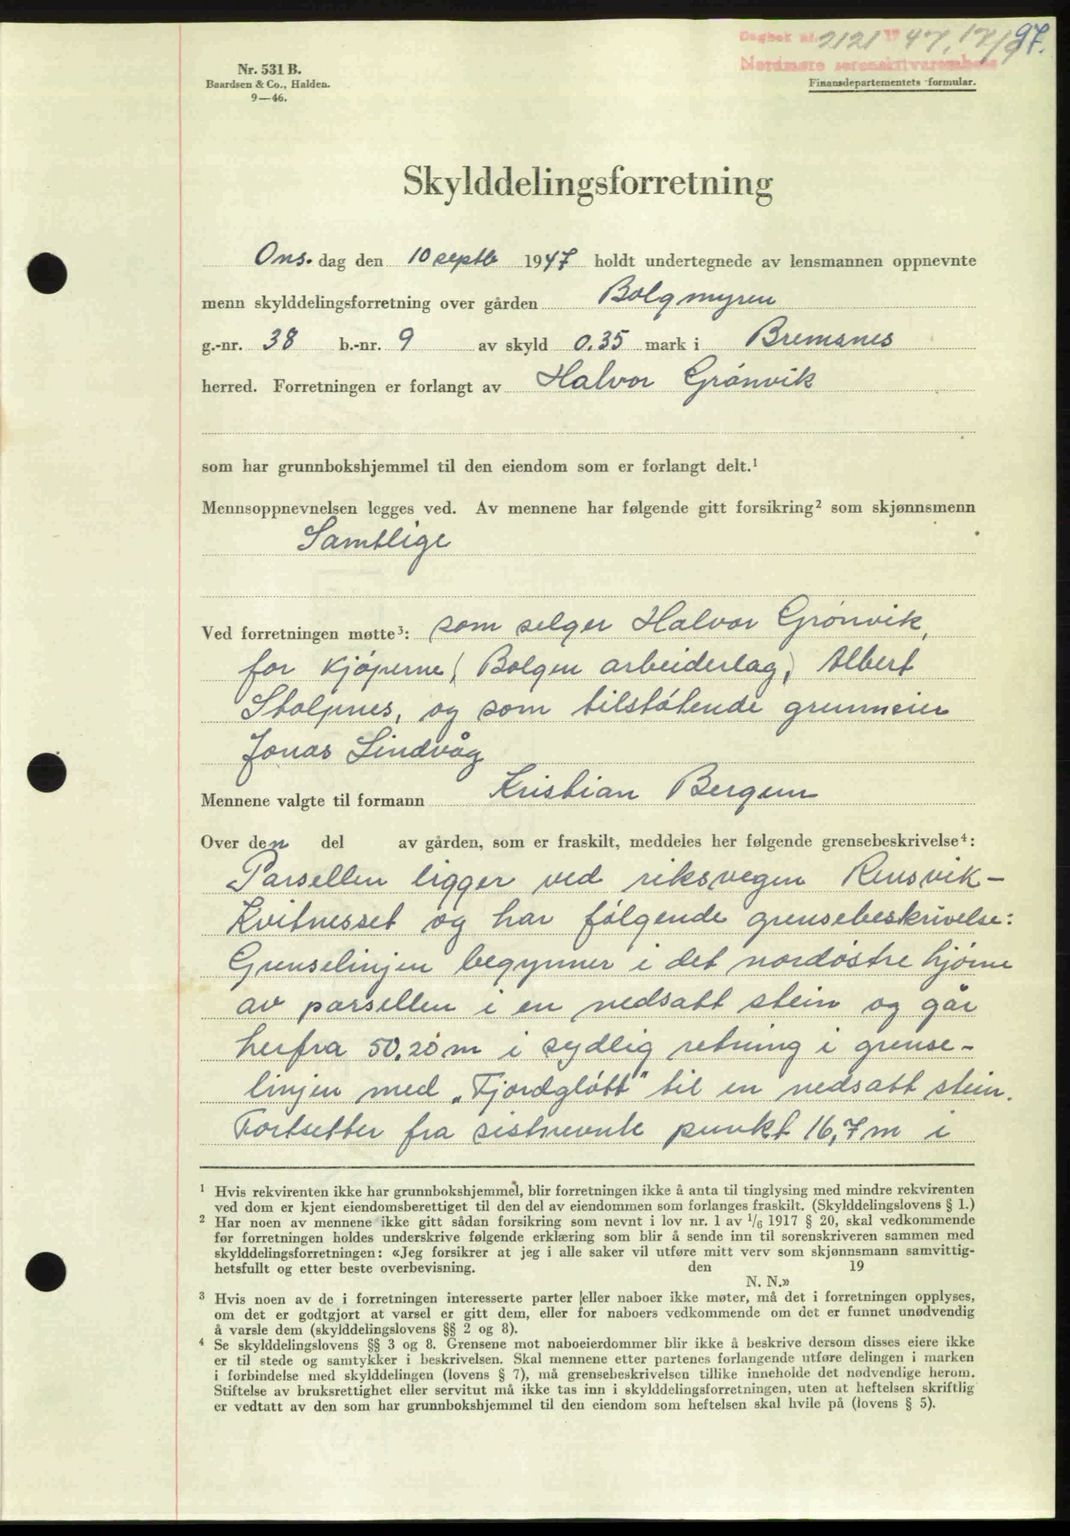 Dagbok nr. 2121 19 47, 12/9
97.
Nordmøre sorenskriverembete
Nr. 531 B.
Baardsen & Co., Halden.
9—46.
Finansdepartementets formular.
Skylddelingsforretning
Ons. dag den 10 septb 1947 holdt undertegnede av lensmannen oppnevnte
menn skylddelingsforretning over gården Bolgmyren
g.-nr. 38 b.-nr. 9 av skyld 0.35 mark i Bremsnes
herred. Forretningen er forlangt av Halvor Grønvik
som har grunnbokshjemmel til den eiendom som er forlangt delt.¹
Mennsoppnevnelsen legges ved. Av mennene har følgende gitt forsikring² som skjønnsmenn
Samtlige
Ved forretningen møtte³: som selger Halvor Grønvik,
for kjøperne (Bolgen arbeiderlag) Albert
Stolpnes, og som tilstøtende grunneier
Jonas Lindvåg
Mennene valgte til formann Kristian Bergem
Over den del av gården, som er fraskilt, meddeles her følgende grensebeskrivelse⁴:
Parsellen ligger ved riksvegen Rensvik-
Kvitnesset og har følgende grensebeskrivelse:
Grenselinjen begynner i det nordøstre hjørne
av parsellen i en nedsatt stein og går
herfra 50.20 m i sydlig retning i grense-
linjen med „Fjordgløtt" til en nedsatt stein.
Fortsetter fra sistnevnte punkt 16,7 m i
¹ Hvis rekvirenten ikke har grunnbokshjemmel, blir forretningen ikke å anta til tinglysing med mindre rekvirenten
ved dom er kjent eiendomsberettiget til den del av eiendommen som forlanges fraskilt. (Skylddelingslovens § 1.)
² Har noen av mennene ikke gitt sådan forsikring som nevnt i lov nr. 1 av ¹/₆ 1917 § 20, skal vedkommende
før forretningen holdes underskrive følgende erklæring som blir å sende inn til sorenskriveren sammen med
skylddelingsforretningen: «Jeg forsikrer at jeg i alle saker vil utføre mitt verv som skjønnsmann samvittig-
hetsfullt og etter beste overbevisning. den 19
N. N.»
³ Hvis noen av de i forretningen interesserte parter eller naboer ikke møter, må det i forretningen opplyses,
om det er godtgjort at varsel er gitt dem, eller for naboers vedkommende om det er funnet unødvendig
å varsle dem (skylddelingslovens §§ 2 og 8).
⁴ Se skylddelingslovens §§ 3 og 8. Grensene mot naboeierdommer blir ikke å beskrive dersom disses eiere ikke
er til stede og samtykker i beskrivelsen. Skal mennene etter partenes forlangende utføre delingen i marken
i forbindelse med skylddelingen (lovens § 7), må grensebeskrivelsen tillike inneholde det nødvendige herom.
Stiftelse av bruksrettighet eller servitut må ikke tas inn i skylddelingsforretningen, uten at heftelsen skriftlig
er vedtatt av den som har grunnbokshjemmel til den eiendom som heftelsen skal hvile på (lovens § 5).